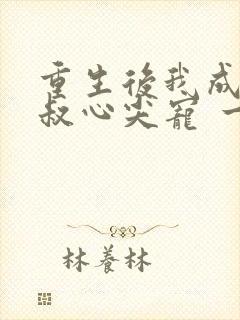 重生後我成
叔心尖寵 一
林養林